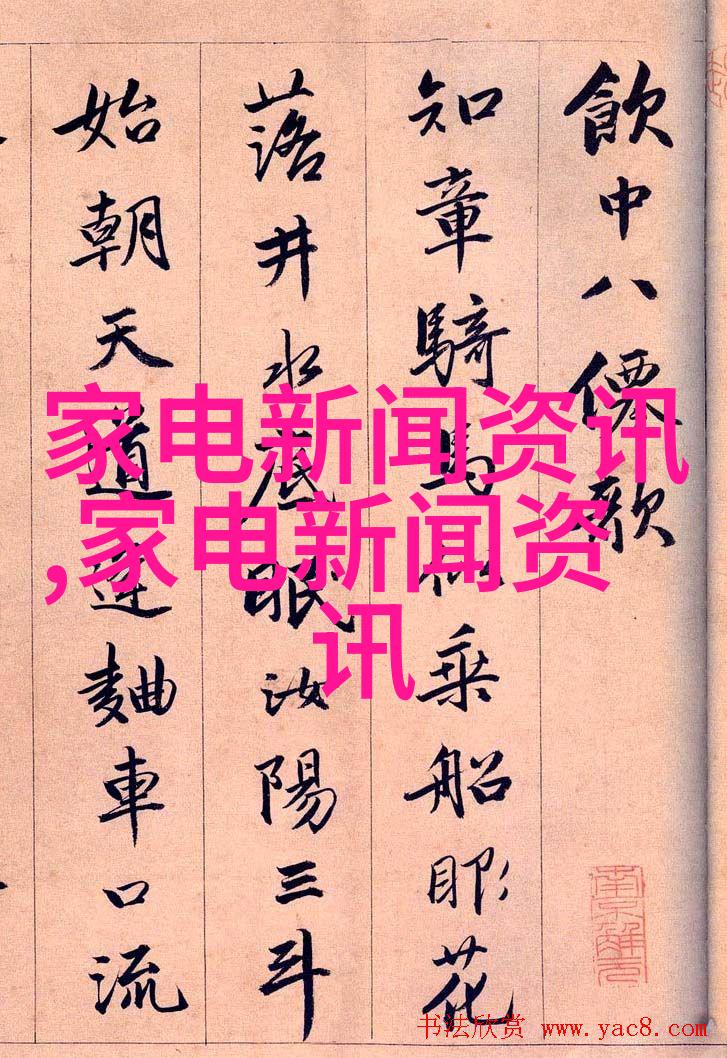 飲中八僊歌
知章騎馬似乘船眼花
落井水底眠汝陽三斗
始朝天道逢麹車口流
家电新闻资讯
,家电新闻资
讯
书法欣赏 www.yac8.com